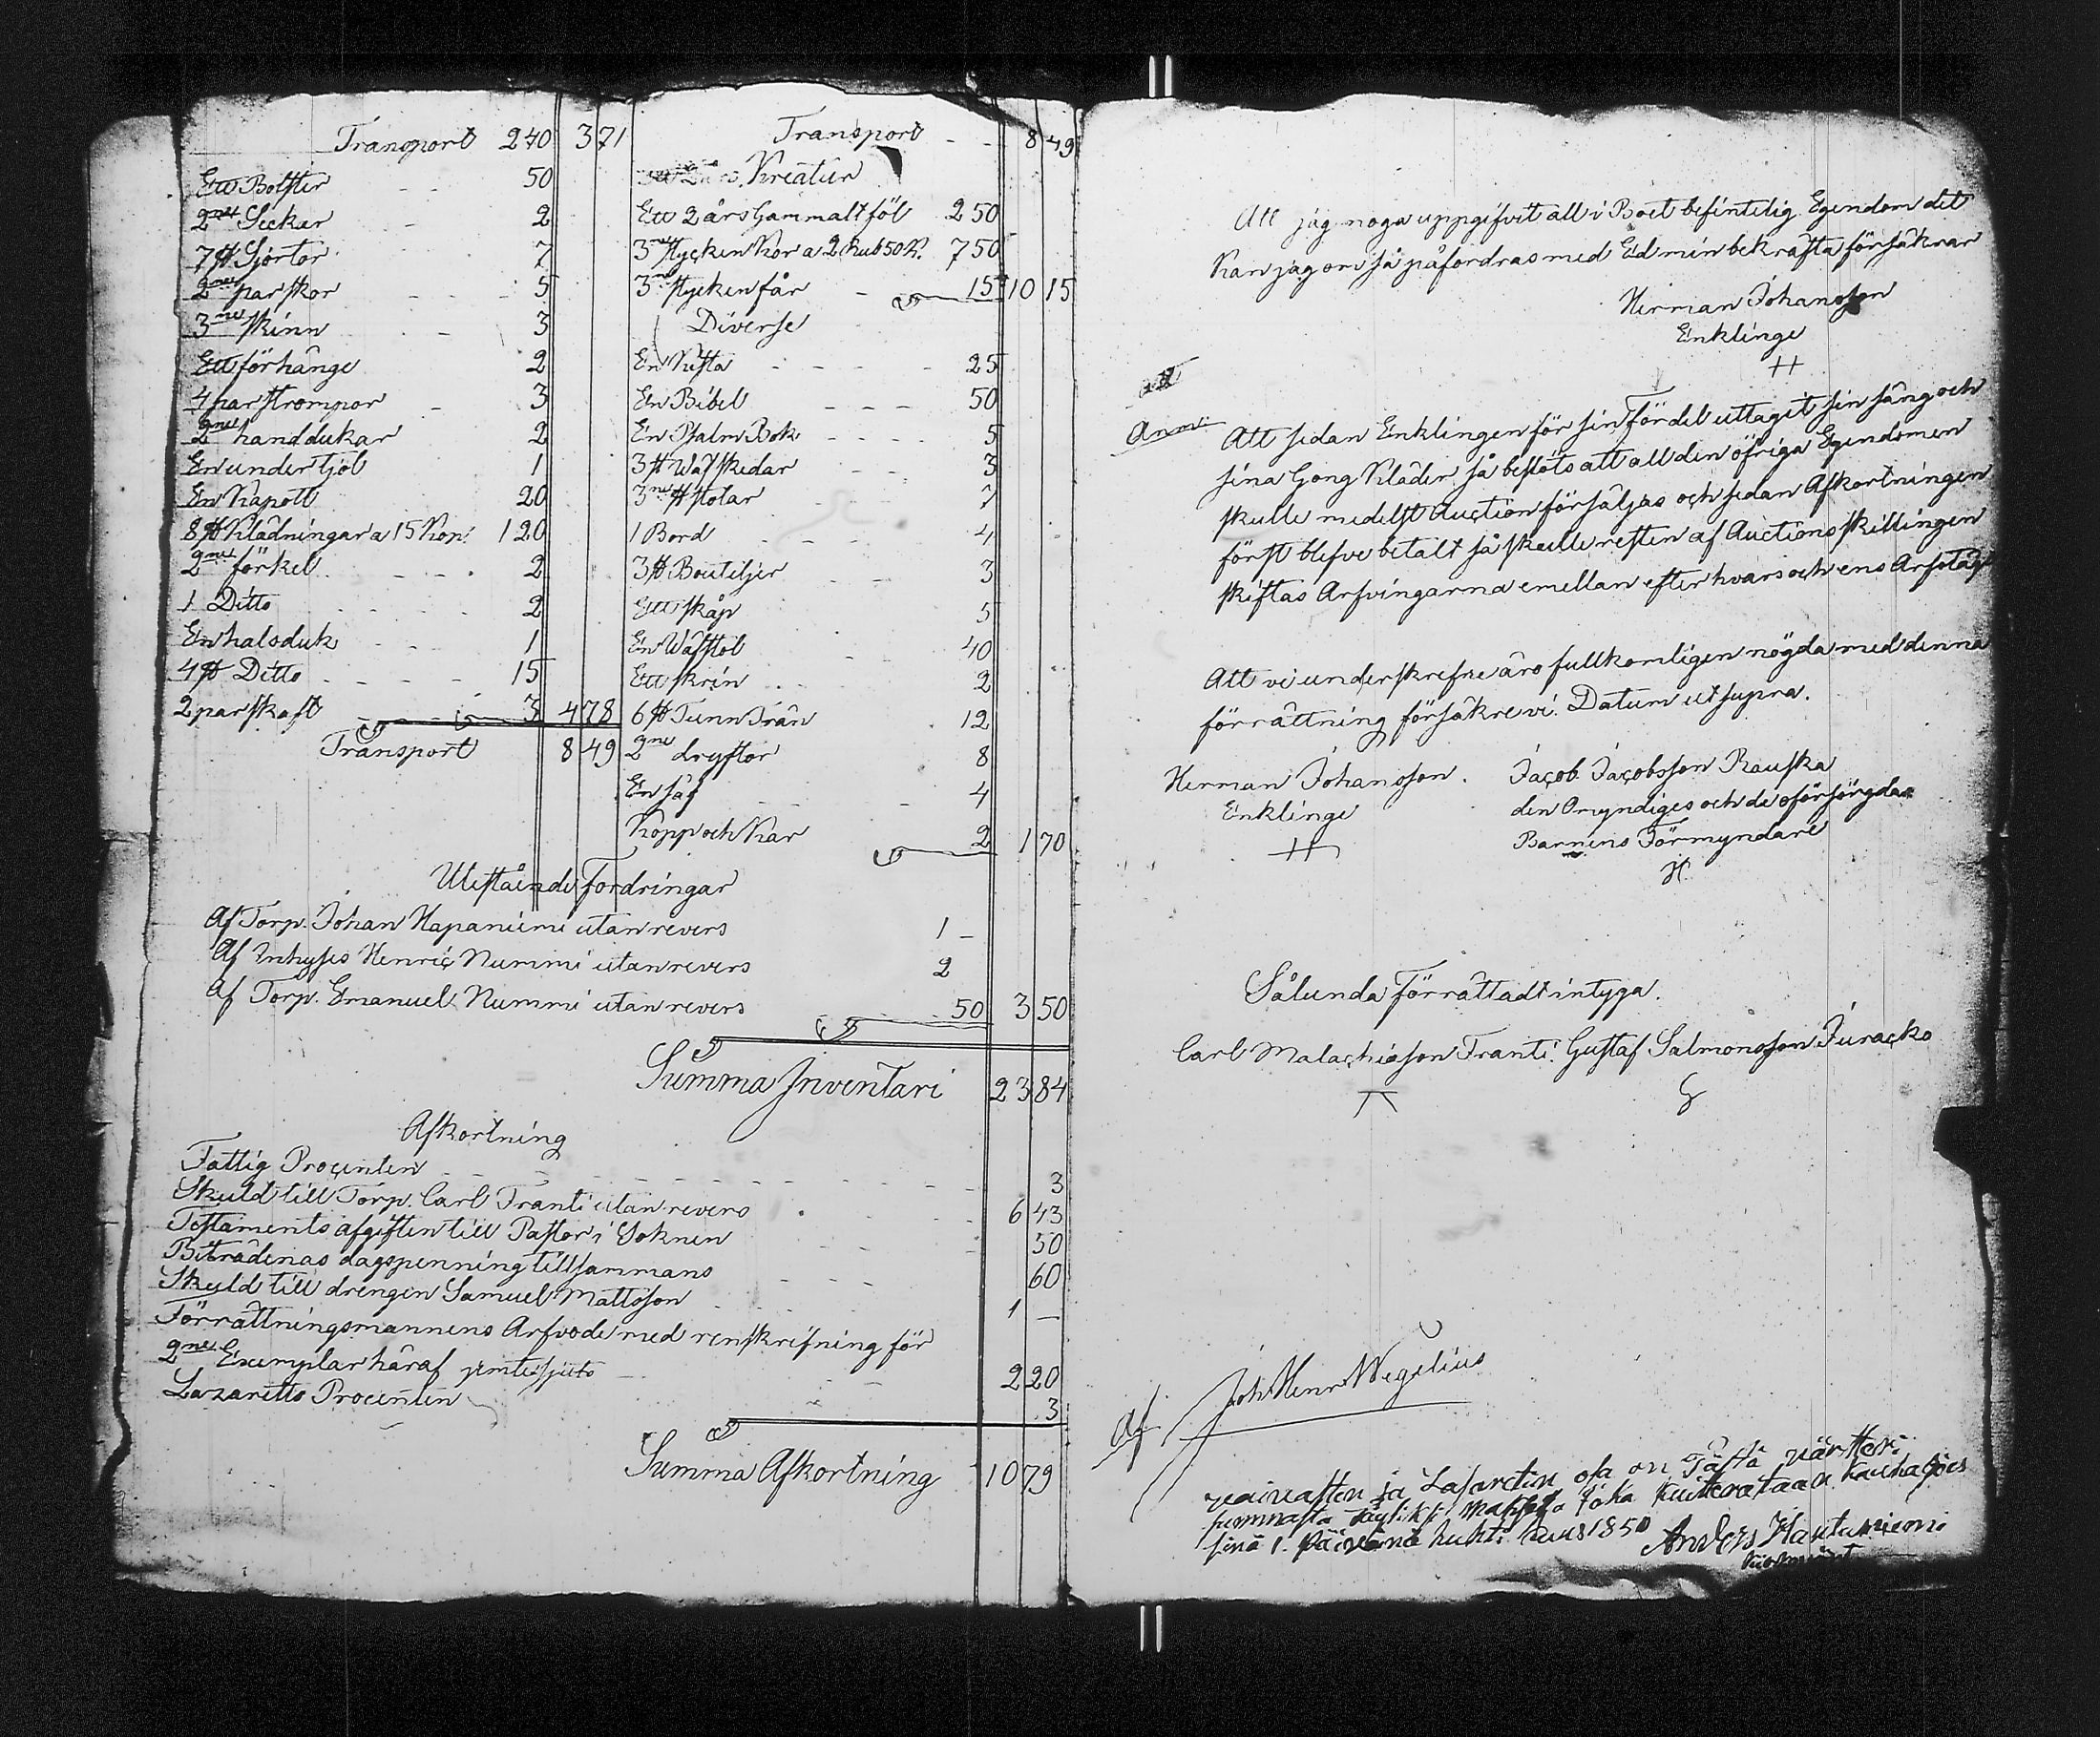 Transport 240 3 71
Ett Bolster 50
2ne Seckar 2
7 st Sjortor 7
2ne par skor 5
3ne skinn 3
Ett förhänge 2
4 par strompor 3
2ne handdukar 2
En undertjol 1
En Kapott 20
8 st Klädningar a 15 Kop. 120
2ne förkel 2
1 Ditto 2
En halsduk 1
4 st Ditto 15
2 par skaft 3 4 78
Transport 8 49
Transport 8 49
Kreatur
Ett 2 års Gammalt föl 2 50
3ne stycken Kor a 2 Rub 50 K. 7 50
3ne stycken får 15 10 15
Diverse
En Kista 25
En Bibel 50
En Psalm Bok 5
3 st Wäfskedar 3
3ne st stolar 7
1 Bord 4
3 st Bouteljer 3
Ett skåp 5
En Wäfstol 40
Ett skrin 2
6 st Tunn Trän 12
2ne dryftor 8
En såf 4
Kopp och Kar 2 1 70
Utestående Fordringar
Af Torp. Johan Hapaniemi utan revers 1 -
Af Inhyses Henric Nummi utan revers 2
Af Torp. Emanuel Nummi utan revers 50 3 50
Summa Inventari 23 84
Afkortning
Fattig Procenten 3
Skuld till Torp. Carl Franti utan revers 6 43
Testaments afgiften till Pastor i Soknen 50
Biträdenas dagspenning tillsammans 60
Skyld till drengen Samuel Mattsson 1 -
Förrättningsmannens Arfvode med renskrifning för
2ne Exemplar häraf 2 20
Lazaretts Procenten 3
Summa Afkortning 10 79
Att jag noga uppgifvit all i Boet befintelig Egendom det
Kan jag om så påfordras med Ed min bekräfta försäkrar
Herman Johansson
Enklinge
Anm: Att sedan Enklingen för sin Fördel uttagit sin säng och
sina Gong Kläder så beslöts att all den öfriga Egendomen
skulle medelst Auction försäljas och sedan Afkortningen
först blefve betalt så skulle resten af Auctions skillingen
skiftas Arfvingarna emellan efter hvars och ens Arfslag
Att vi underskrefne äro fullkomligen nögda med denna
förrättning försäkre vi. Datum utsupra.
Herman Johansson. Jacob Jacobsson Rauska
Enklinge den Omyndiges och de oförsörgda
Barnens Förmyndare
Sålunda Förrättadt intyga.
Carl Malachiasson Franti. Gustaf Salmonsson Juracko
Af Joh Henr Wegelius
vaivasten ja Lasaretin osa on Tästä värtteri
summasta täyliksi maksettu joka kuiterataan Kauhajoes
sinä 1. päivänä huhti kuus 1850 Anders Hautaniemi